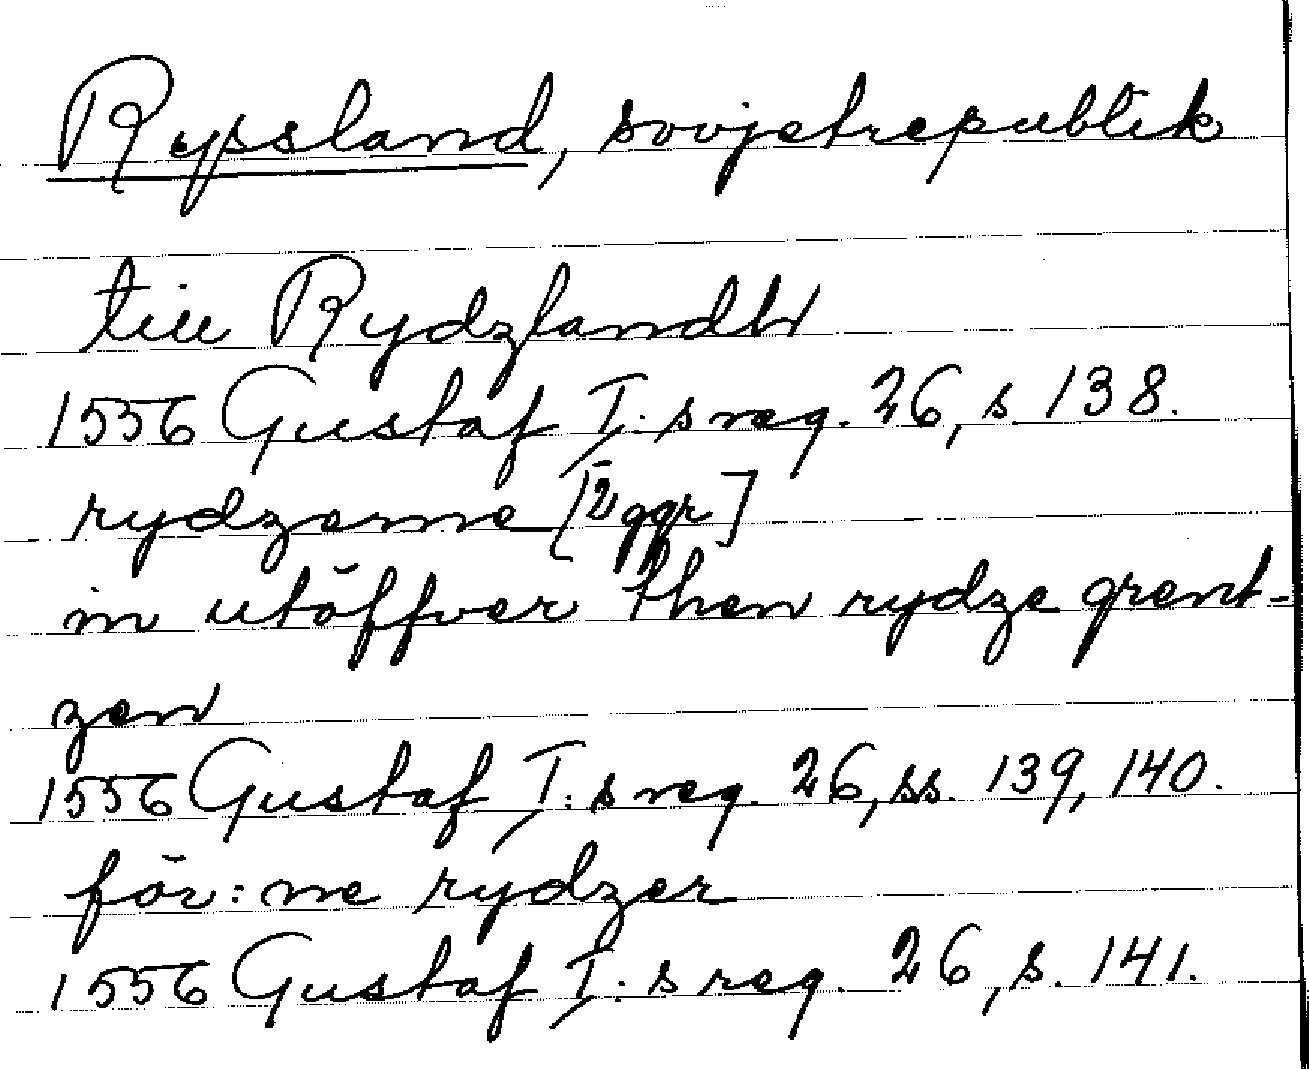 Ryssland, sovjetrepublik
till Rydzlandh
1556 Gustaf I:s reg. 26, s. 138.
rydzerne [2 ggr]
in utöffver then rydze grent-
zen
1556 Gustaf I:s reg. 26, ss. 139, 140.
för:ne rydzer
1556 Gustaf I:s reg. 26, s. 141.